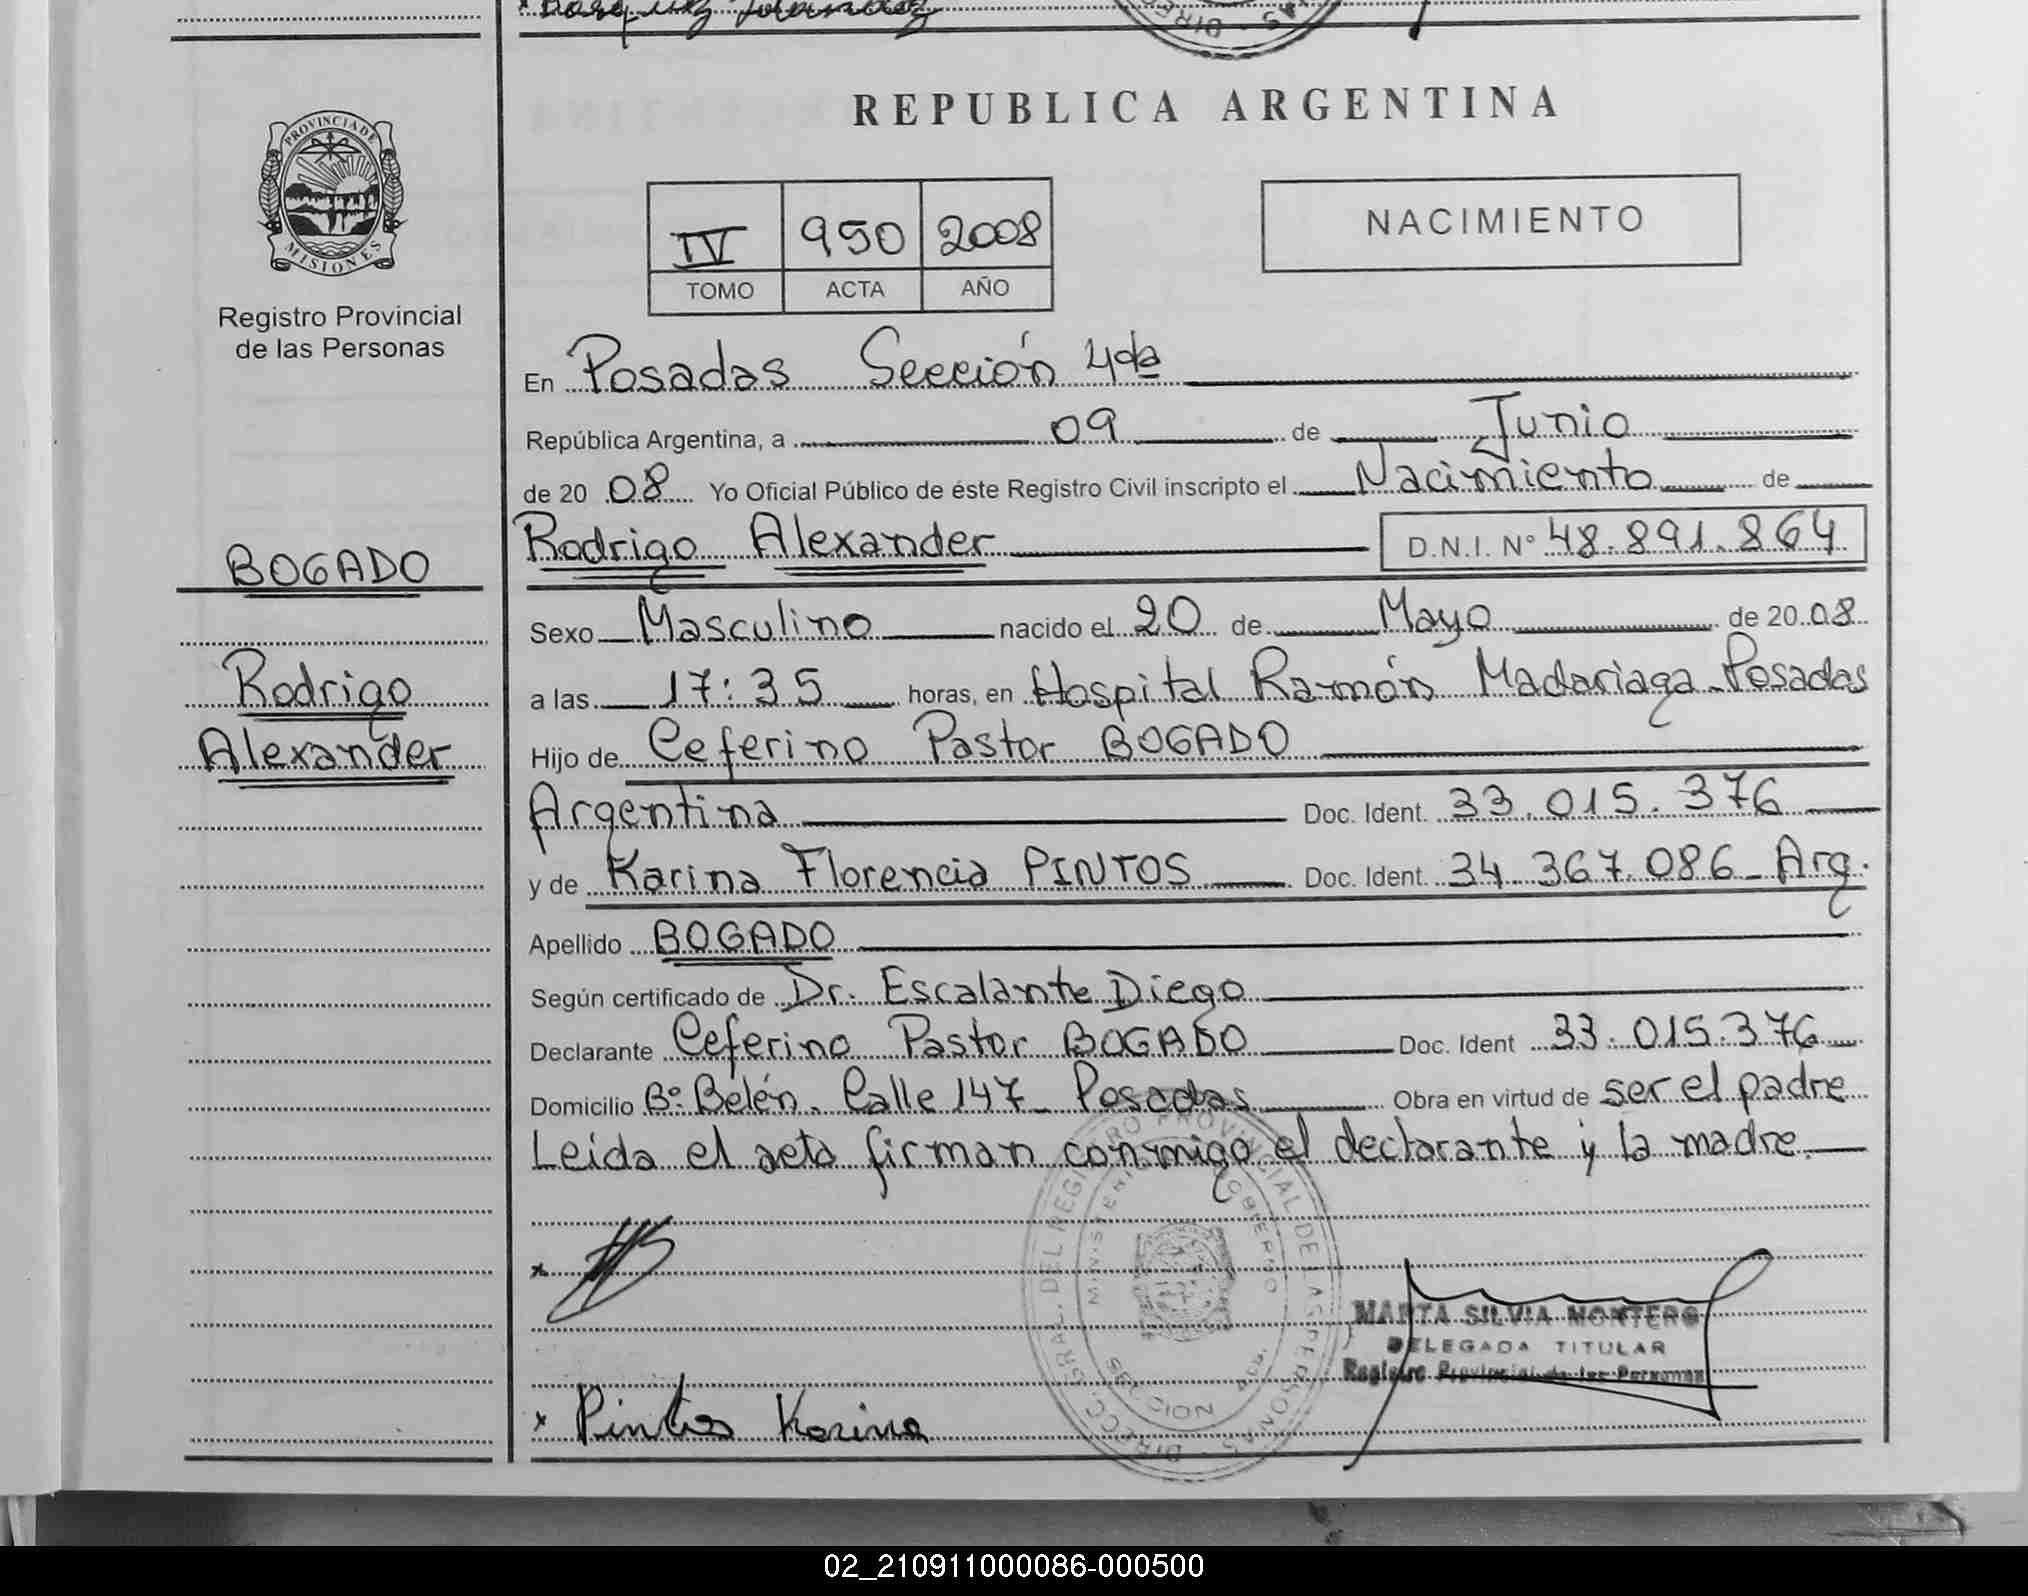 REPUBLICA ARGENTINA
PROVINCIA DE
MISIONES
Registro Provincial
de las Personas
IV 950 2008
TOMO ACTA AÑO
NACIMIENTO
En Posadas Sección 4da
República Argentina, a 09 de Junio
de 20 08 Yo Oficial Público de éste Registro Civil inscripto el Nacimiento de
Rodrigo Alexander D.N.I. Nº 48.891.864
BOGADO
Rodrigo
Alexander
Sexo Masculino nacido el 20 de Mayo de 20 08
a las 17:35 horas, en Hospital Ramón Madariaga - Posadas
Hijo de Ceferino Pastor BOGADO
Argentina Doc. Ident. 33.015.376
y de Karina Florencia PINTOS Doc. Ident. 34.367.086 - Arg.
Apellido BOGADO
Según certificado de Dr. Escalante Diego
Declarante Ceferino Pastor BOGADO Doc. Ident 33.015.376
Domicilio Bº Belén. Calle 147 - Posadas Obra en virtud de ser el padre
Leída el acta firman conmigo el declarante y la madre.
DIRECC. GRAL. DEL REGISTRO PROVINCIAL DE LAS PERSONAS
MINISTERIO GOBIERNO
MISIONES
MARTA SILVIA MONTERO
DELEGADA TITULAR
Registro Provincial de las Personas
x
x Pintos Karina
02_210911000086-000500